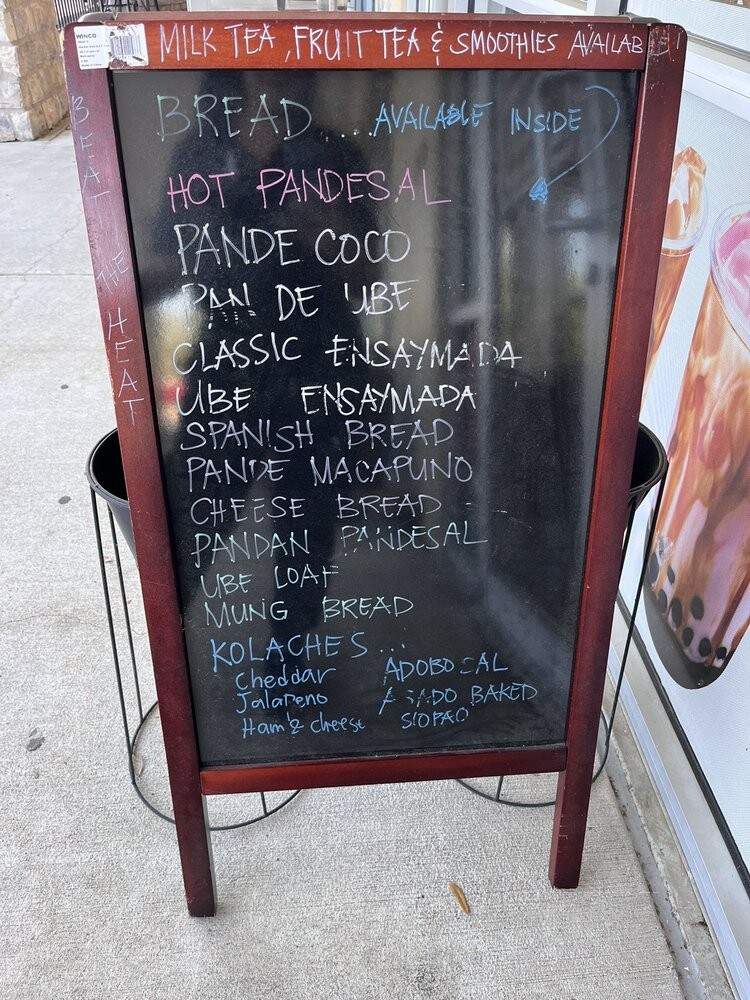 WINCO
MILK TEA, FRUIT TEA & SMOOTHIES AVAILABLE
BEAT THE HEAT
BREAD.... AVAILABLE INSIDE
HOT PANDESAL
PANDE COCO
PAN DE UBE
CLASSIC ENSAYMADA
UBE ENSAYMADA
SPANISH BREAD
PANDE MACAPUNO
CHEESE BREAD
PANDAN PANDESAL
UBE LOAF
MUNG BREAD
KOLACHES...
Cheddar
Jalapeno
Ham & cheese
ADOBO
ASADO BAKED
SIOPAO